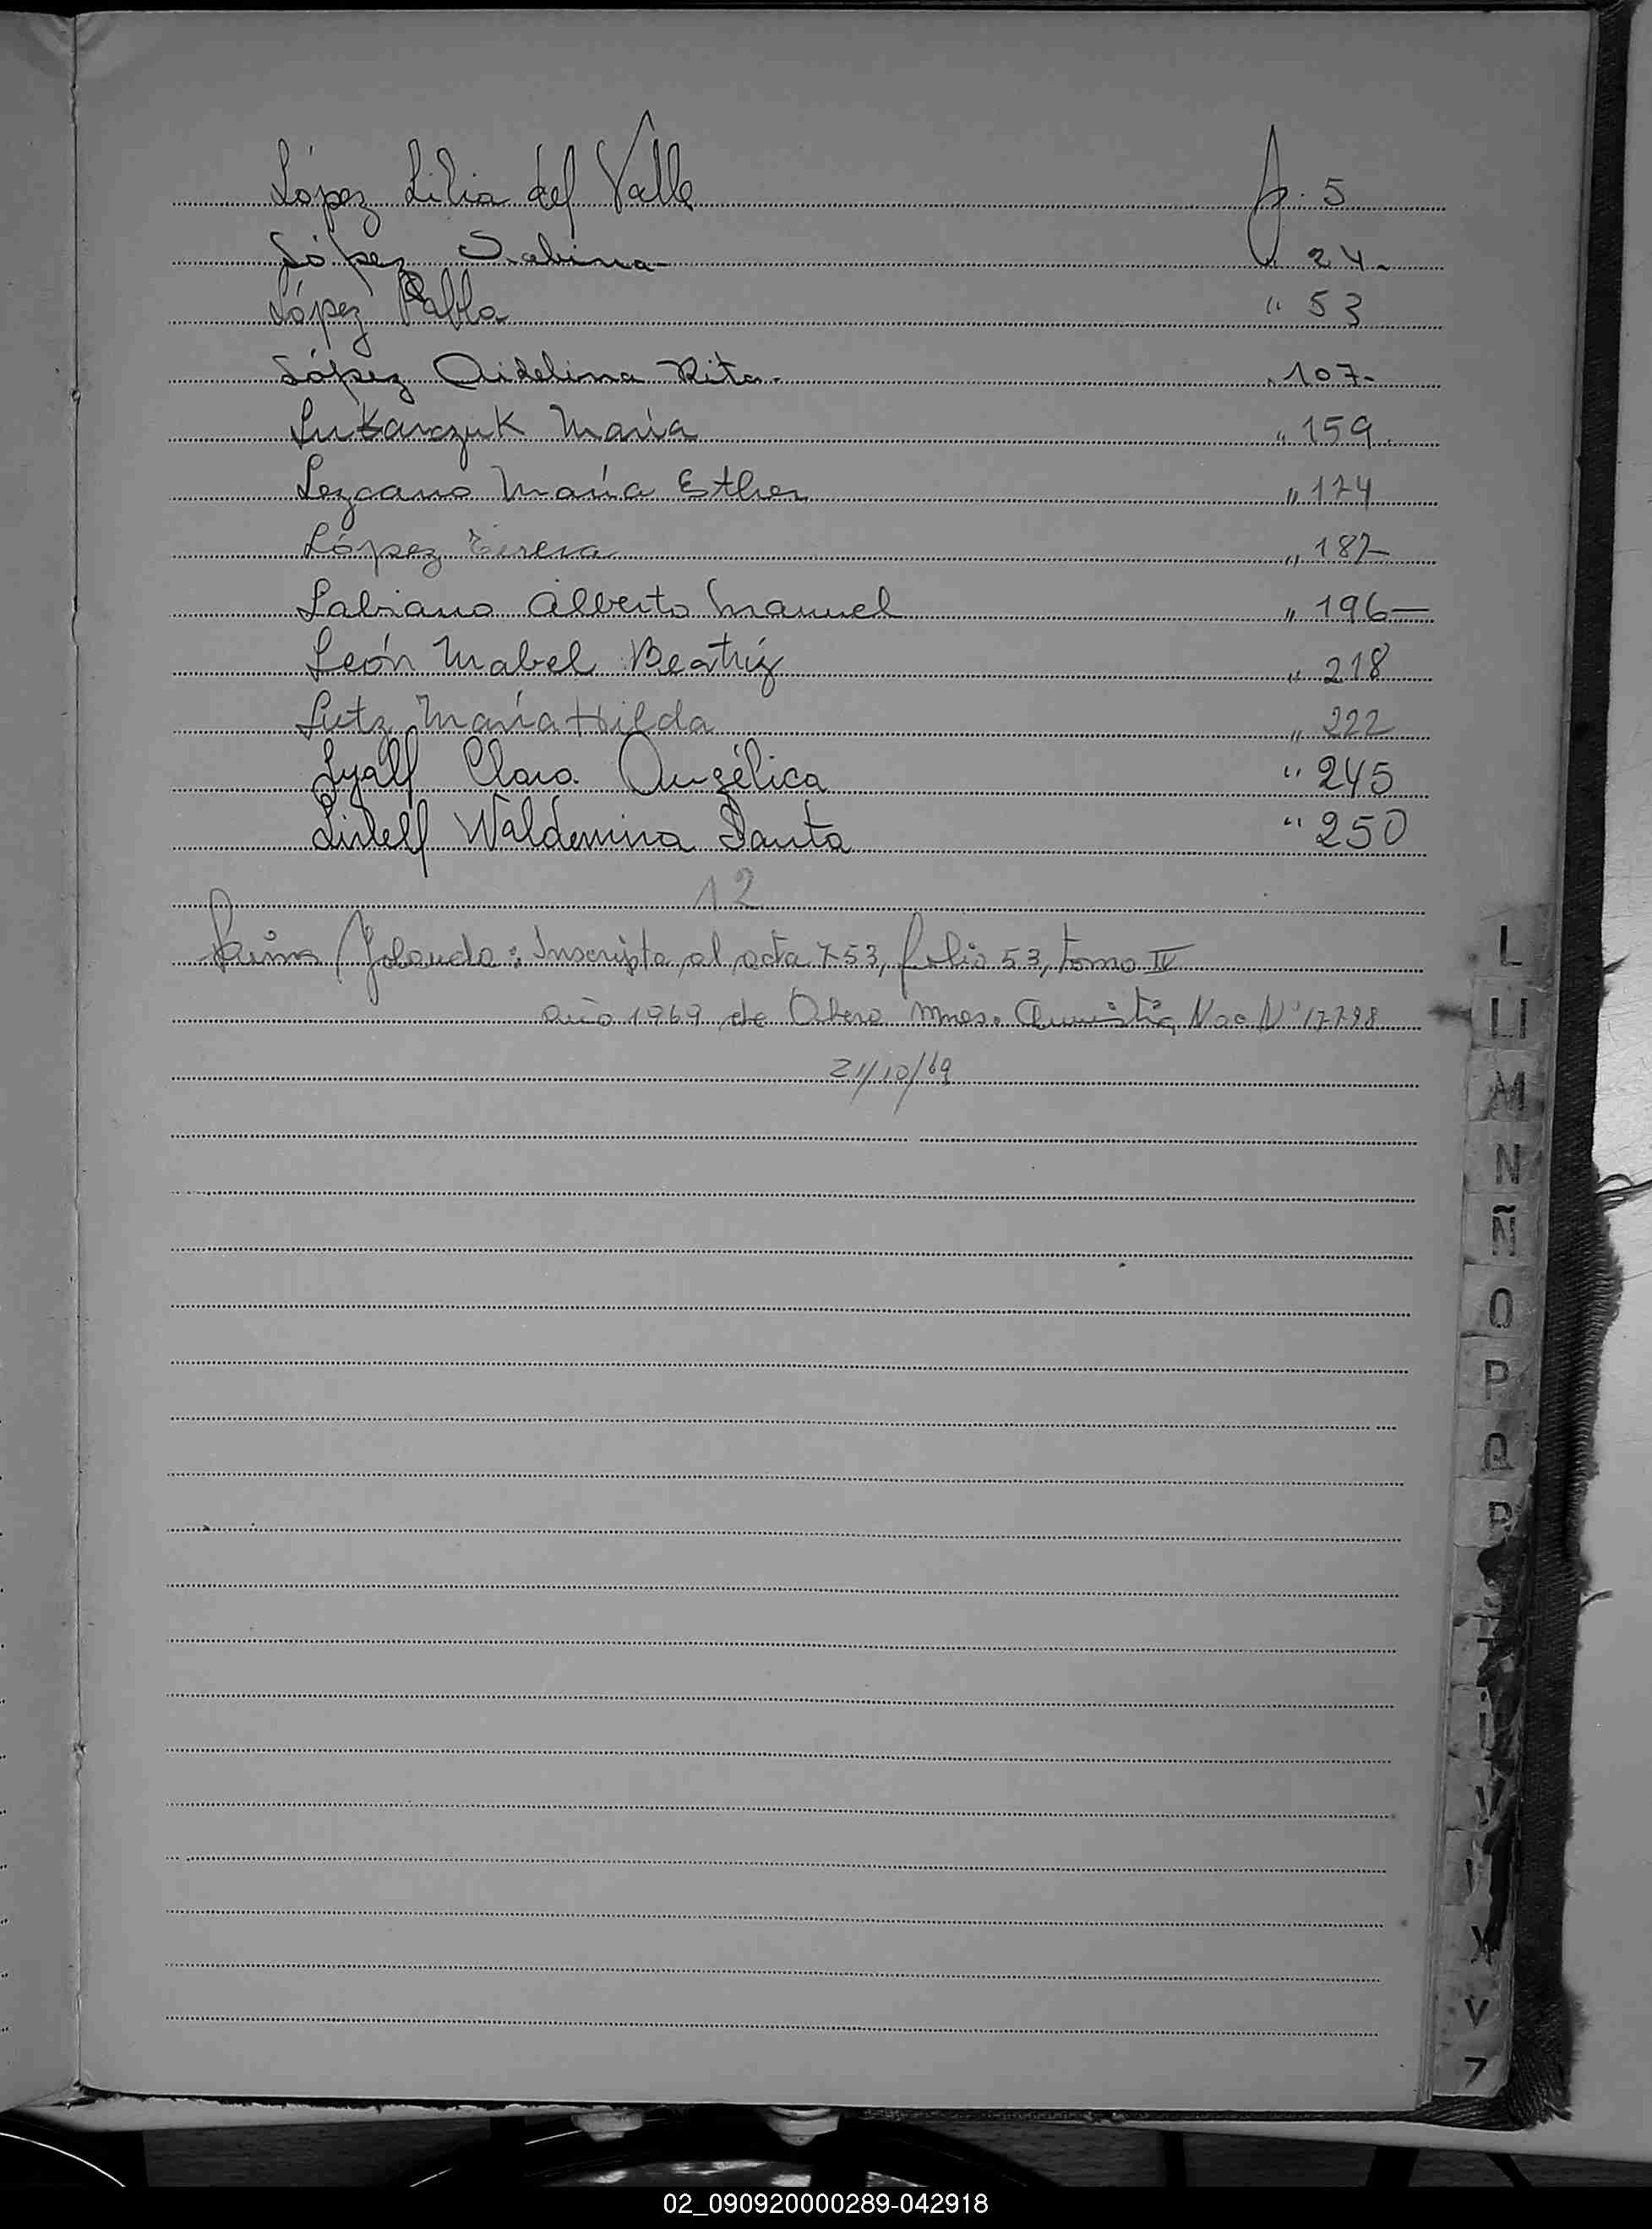 López Lilia del Valle f. 5
López Sabina " 24.
López Pabla " 53
López Aidelina Rita. " 107-
Lukarczuk María " 159.
Lezcano María Esther " 174
López Teresa " 187-
Labiano Alberto Manuel " 196-
León Mabel Beatríz " 218
Lutz María Hilda " 222
Lyall Clara Angélica " 245
Waldemina Santa " 250
12
Yolanda: Inscripta al acta 753, folio 53, tomo IV
año 1969 de Obera Mnes. Amnistía Nac Nº 17798
21/10/69
L
Ll
M
N
Ñ
O
P
Q
R
U
V
X
Y
Z
02_090920000289-042918